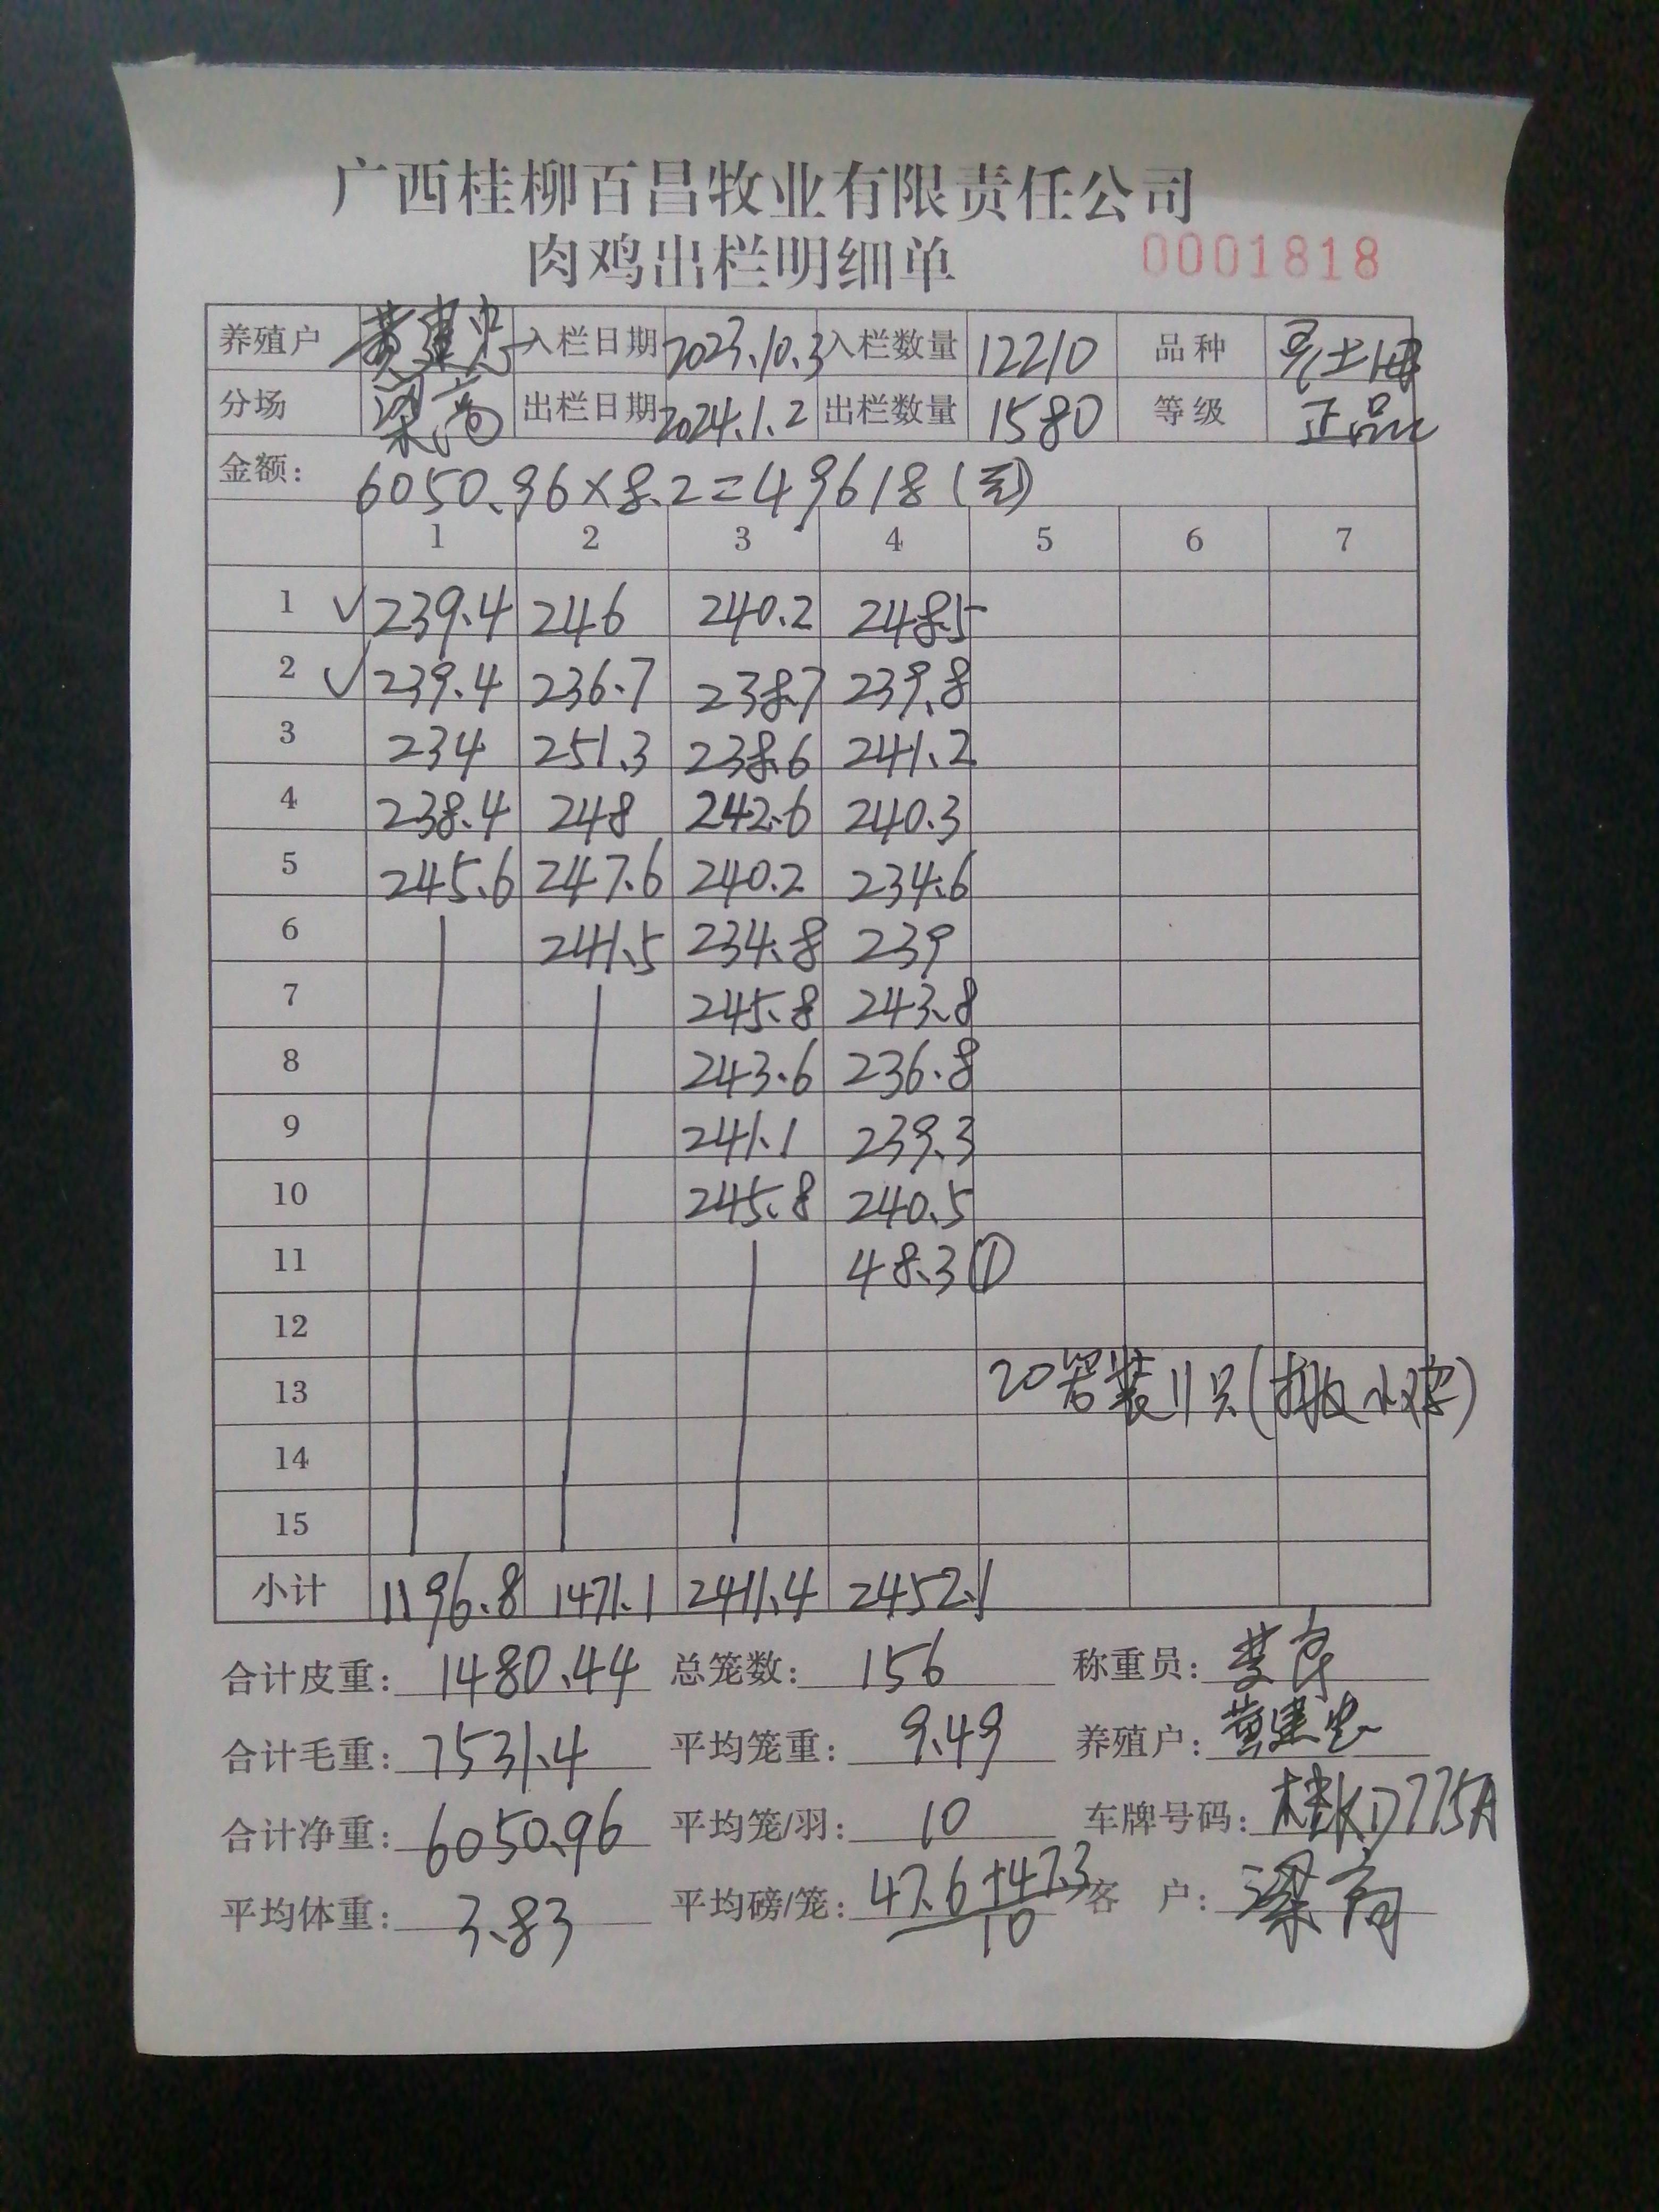 广西桂柳百昌牧业有限责任公司
肉鸡出栏明细单 0001818
养殖户 黄建忠 入栏日期 2023.10.3 入栏数量 12210 品种
分场 梁高 出栏日期 2024.1.2 出栏数量 1580 等级 正品
金额: 6050.96×8.2=49618(元)
1 2 3 4 5 6 7
1 √ 239.4 246 240.2 248.5
2 √ 239.4 236.7 238.7 239.8
3 234 251.3 238.6 241.2
4 238.4 248 242.6 240.3
5 245.6 247.6 240.2 234.6
6 241.5 234.8 239
7 245.8 243.8
8 243.6 236.8
9 241.1 239.3
10 245.8 240.5
11 48.3 ①
12
13 20笼装11只(
14
15
小计 1196.8 1471.1 2411.4 2452.1
合计皮重: 1480.44 总笼数: 156 称重员:
合计毛重: 7531.4 平均笼重: 9.49 养殖户: 黄建忠
合计净重: 6050.96 平均笼/羽: 10 车牌号码: 桂KD775A
平均体重: 3.83 平均磅/笼: 47.6+47.3 客 户: 梁高
10